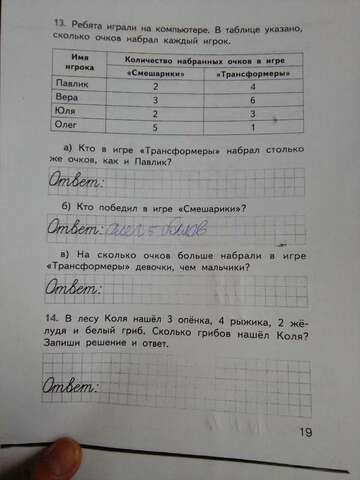 13. Ребята играли на компьютере. В таблице указано,
сколько очков набрал каждый игрок.
Имя игрока | Количество набранных очков в игре
«Смешарики» | «Трансформеры»
Павлик 2 4
Вера 3 6
Юля 2 3
Олег 5 1
а) Кто в игре «Трансформеры» набрал столько
же очков, как и Павлик?
Ответ:
б) Кто победил в игре «Смешарики»?
Ответ: олег 5
в) На сколько очков больше набрали в игре
«Трансформеры» девочки, чем мальчики?
Ответ:
14. В лесу Коля нашёл 3 опёнка, 4 рыжика, 2 жё-
лудя и белый гриб. Сколько грибов нашёл Коля?
Запиши решение и ответ.
Ответ:
19